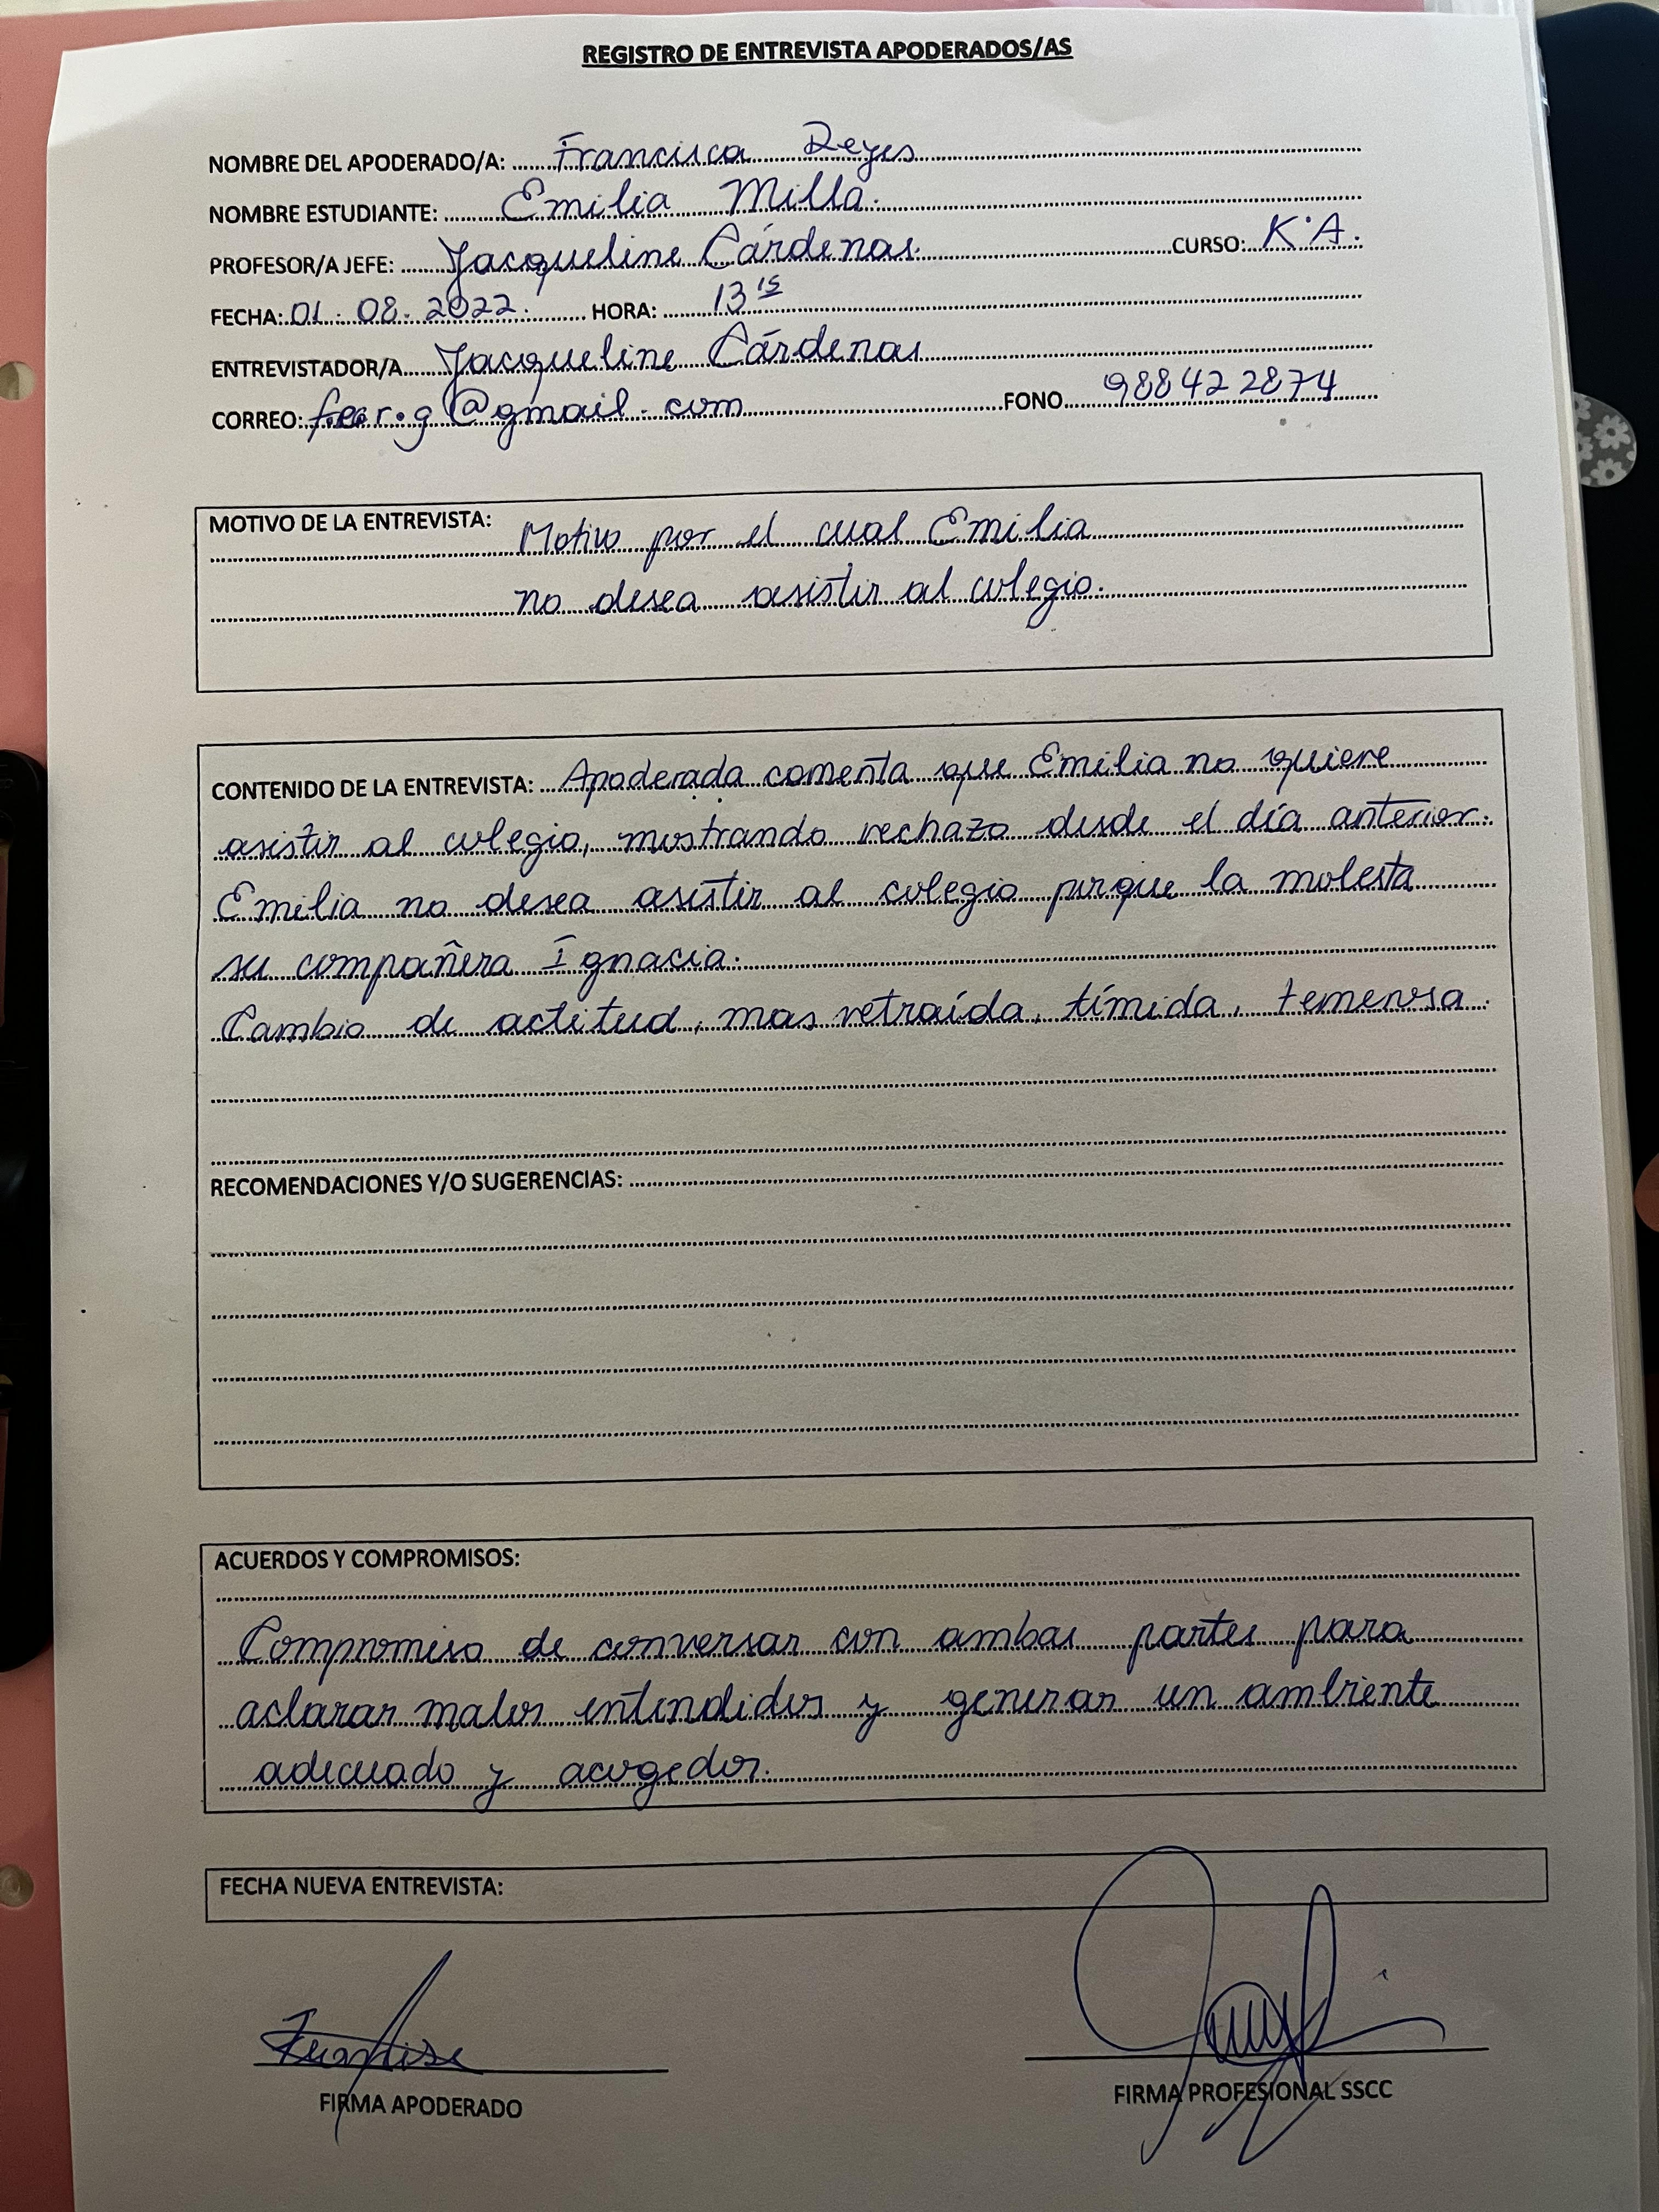 REGISTRO DE ENTREVISTA APODERADOS/AS
NOMBRE DEL APODERADO/A: Francisca Reyes
NOMBRE ESTUDIANTE: Emilia Milla.
PROFESOR/A JEFE: Jacqueline Cárdenas. CURSO: K°A.
FECHA: 01.08.2022. HORA: 13 15
ENTREVISTADOR/A Jacqueline Cárdenas
CORREO: @gmail.com FONO 988422874
MOTIVO DE LA ENTREVISTA: Motivo por el cual Emilia
no desea asistir al colegio.
CONTENIDO DE LA ENTREVISTA: Apoderada comenta que Emilia no quiere
asistir al colegio, mostrando rechazo desde el día anterior.
Emilia no desea asistir al colegio porque la molesta
su compañera Ignacia.
Cambio de actitud, mas retraída, tímida, temerosa.
RECOMENDACIONES Y/O SUGERENCIAS:
ACUERDOS Y COMPROMISOS:
Compromiso de conversar con ambas partes para
aclarar malos entendidos y generar un ambiente
adecuado y acogedor.
FECHA NUEVA ENTREVISTA:
FIRMA APODERADO
FIRMA PROFESIONAL SSCC